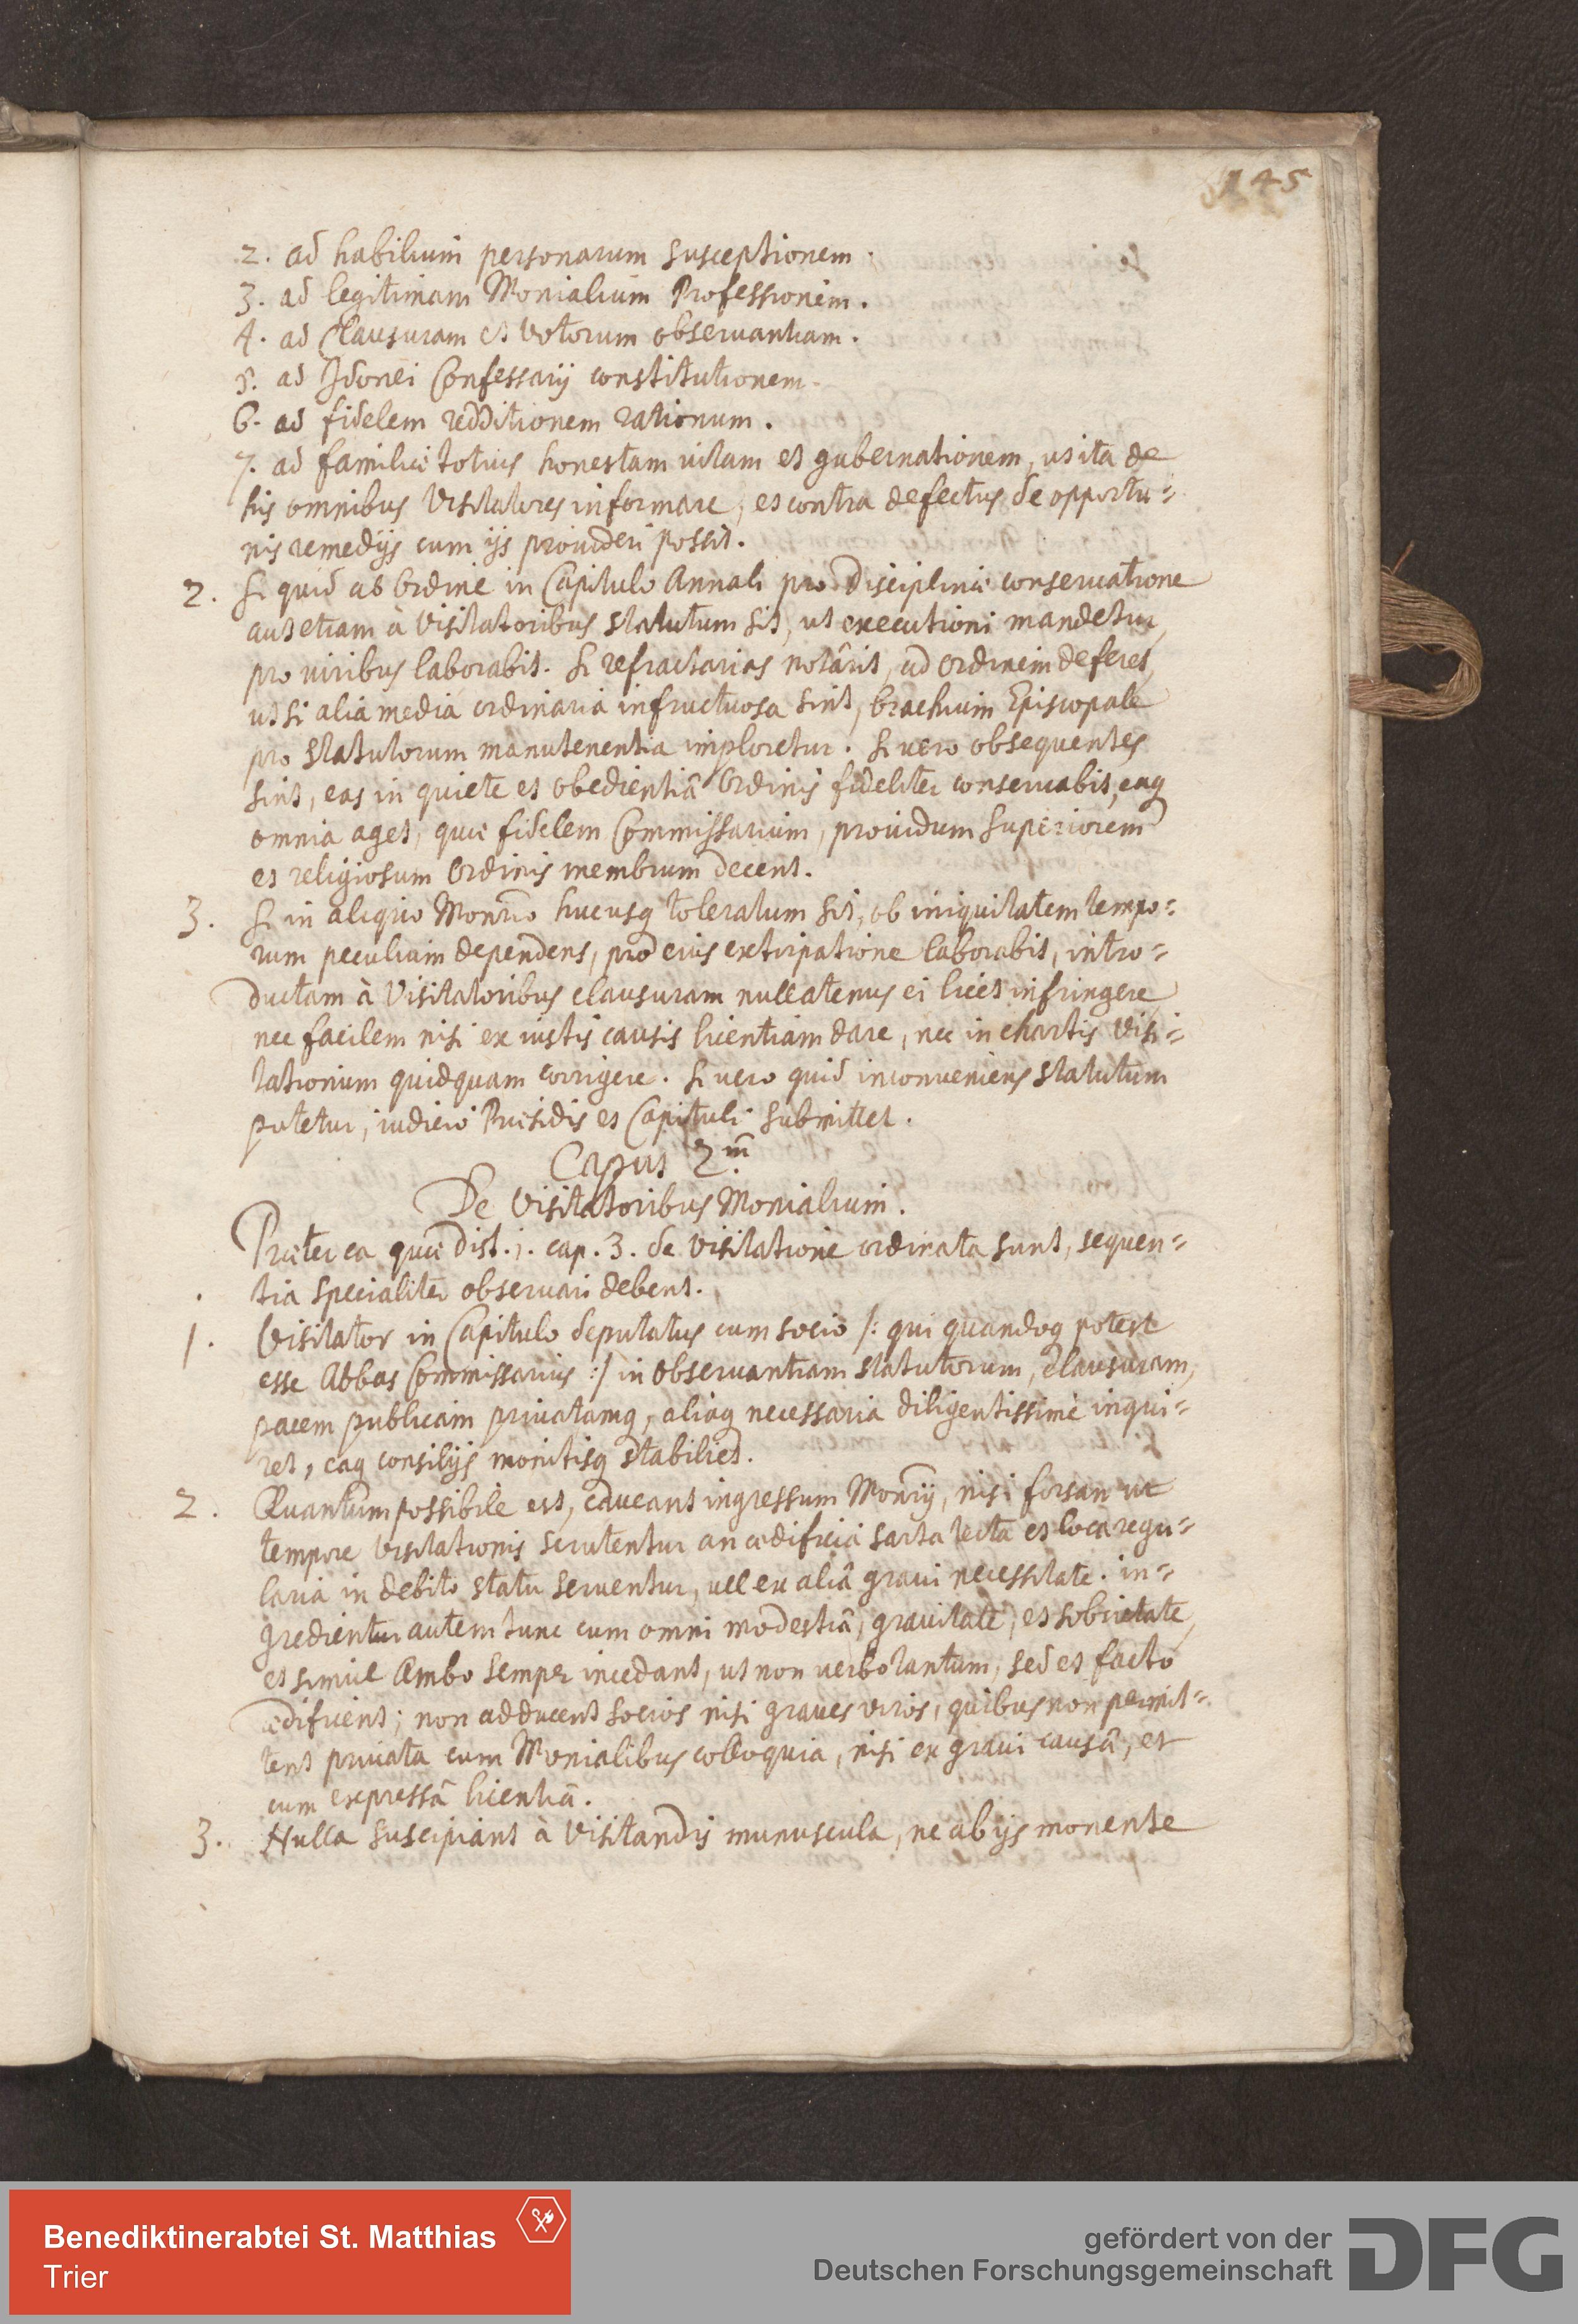 145
2. ad habilium personarum susceptionem.
3. ad legitimam Monialium Professionem.
4. ad Clausuram et Votorum observantiam.
5. ad Idonei Confessarij constitutionem.
6. ad fidelem redditionem rationum.
7. ad familiæ totius honestam vitam et gubernationem, ut ita de
his omnibus Visitatores informare, et contra defectus de opportu=
nis remedijs cum ijs provideri possit.
2. Si quid ab Ordine in Capitulo Annali pro Disciplinæ conservatione
aut etiam à Visitatoribus statutum sit, ut executioni mandetur,
pro viribus laborabit. Si refractarias notârit, ad Ordinem deferet,
ut si alia media ordinaria infructuosa sint, brachium Episcopale
pro statutorum manutenentia imploretur. Si vero obsequentes
sint, eas in quiete et obedientiâ Ordinis fideliter conservabit, eaq
omnia aget, quæ fidelem Commissarium, providum Superiorem
et religiosum Ordinis membrum decent.
3. Si in aliquo Monrio hucusq toleratum sit, ob iniquitatem tempo=
rum peculium dependens, pro eius extirpatione laborabit, intro=
ductam à Visitatoribus clausuram nullatenus ei licet infringere
nec facilem nisi ex iustis causis licentiam dare, nec in chartis Visi=
tationum quidquam corrigere. Si vero quid inconveniens statutum
putetur, iudicio Præsidis et Capituli submittet.
Caput 2.m
De Visitatoribus Monialium.
Præter ea quæ Dist. 1. cap. 3. de Visitatione ordinata sunt, sequen=
tia specialiter observari debent.
1. Visitator in Capitulo deputatus cum socio /: qui quandoq potest
esse Abbas Commissarius :/ in observantiam statutorum, clausuram,
pacem publicam privatamq, aliaq necessaria diligentissimè inqui=
ret, eaq consilijs monitisq stabiliet.
2. Quantum possibile est, caveant ingressum Monrij, nisi forsan ut
tempore Visitationis scrutentur an ædificia sarta tecta et loca regu=
laria in debito statu serventur, vel ex aliâ gravi necessitate. in=
gredientur autem tunc cum omni modestiâ, gravitate, et sobrietate,
et simul Ambo semper incedant, ut non verbo tantum, sed et facto
ædificent; non adducent socios nisi graves viros, quibus non permit=
tent privata cum Monialibus colloquia, nisi ex gravi causâ, et
cum expressâ licentiâ.
3. Nulla suscipiant à Visitandis munuscula, ne ab ijs monente
Benediktinerabtei St. Matthias
Trier
gefördert von der
Deutschen Forschungsgemeinschaft
DFG